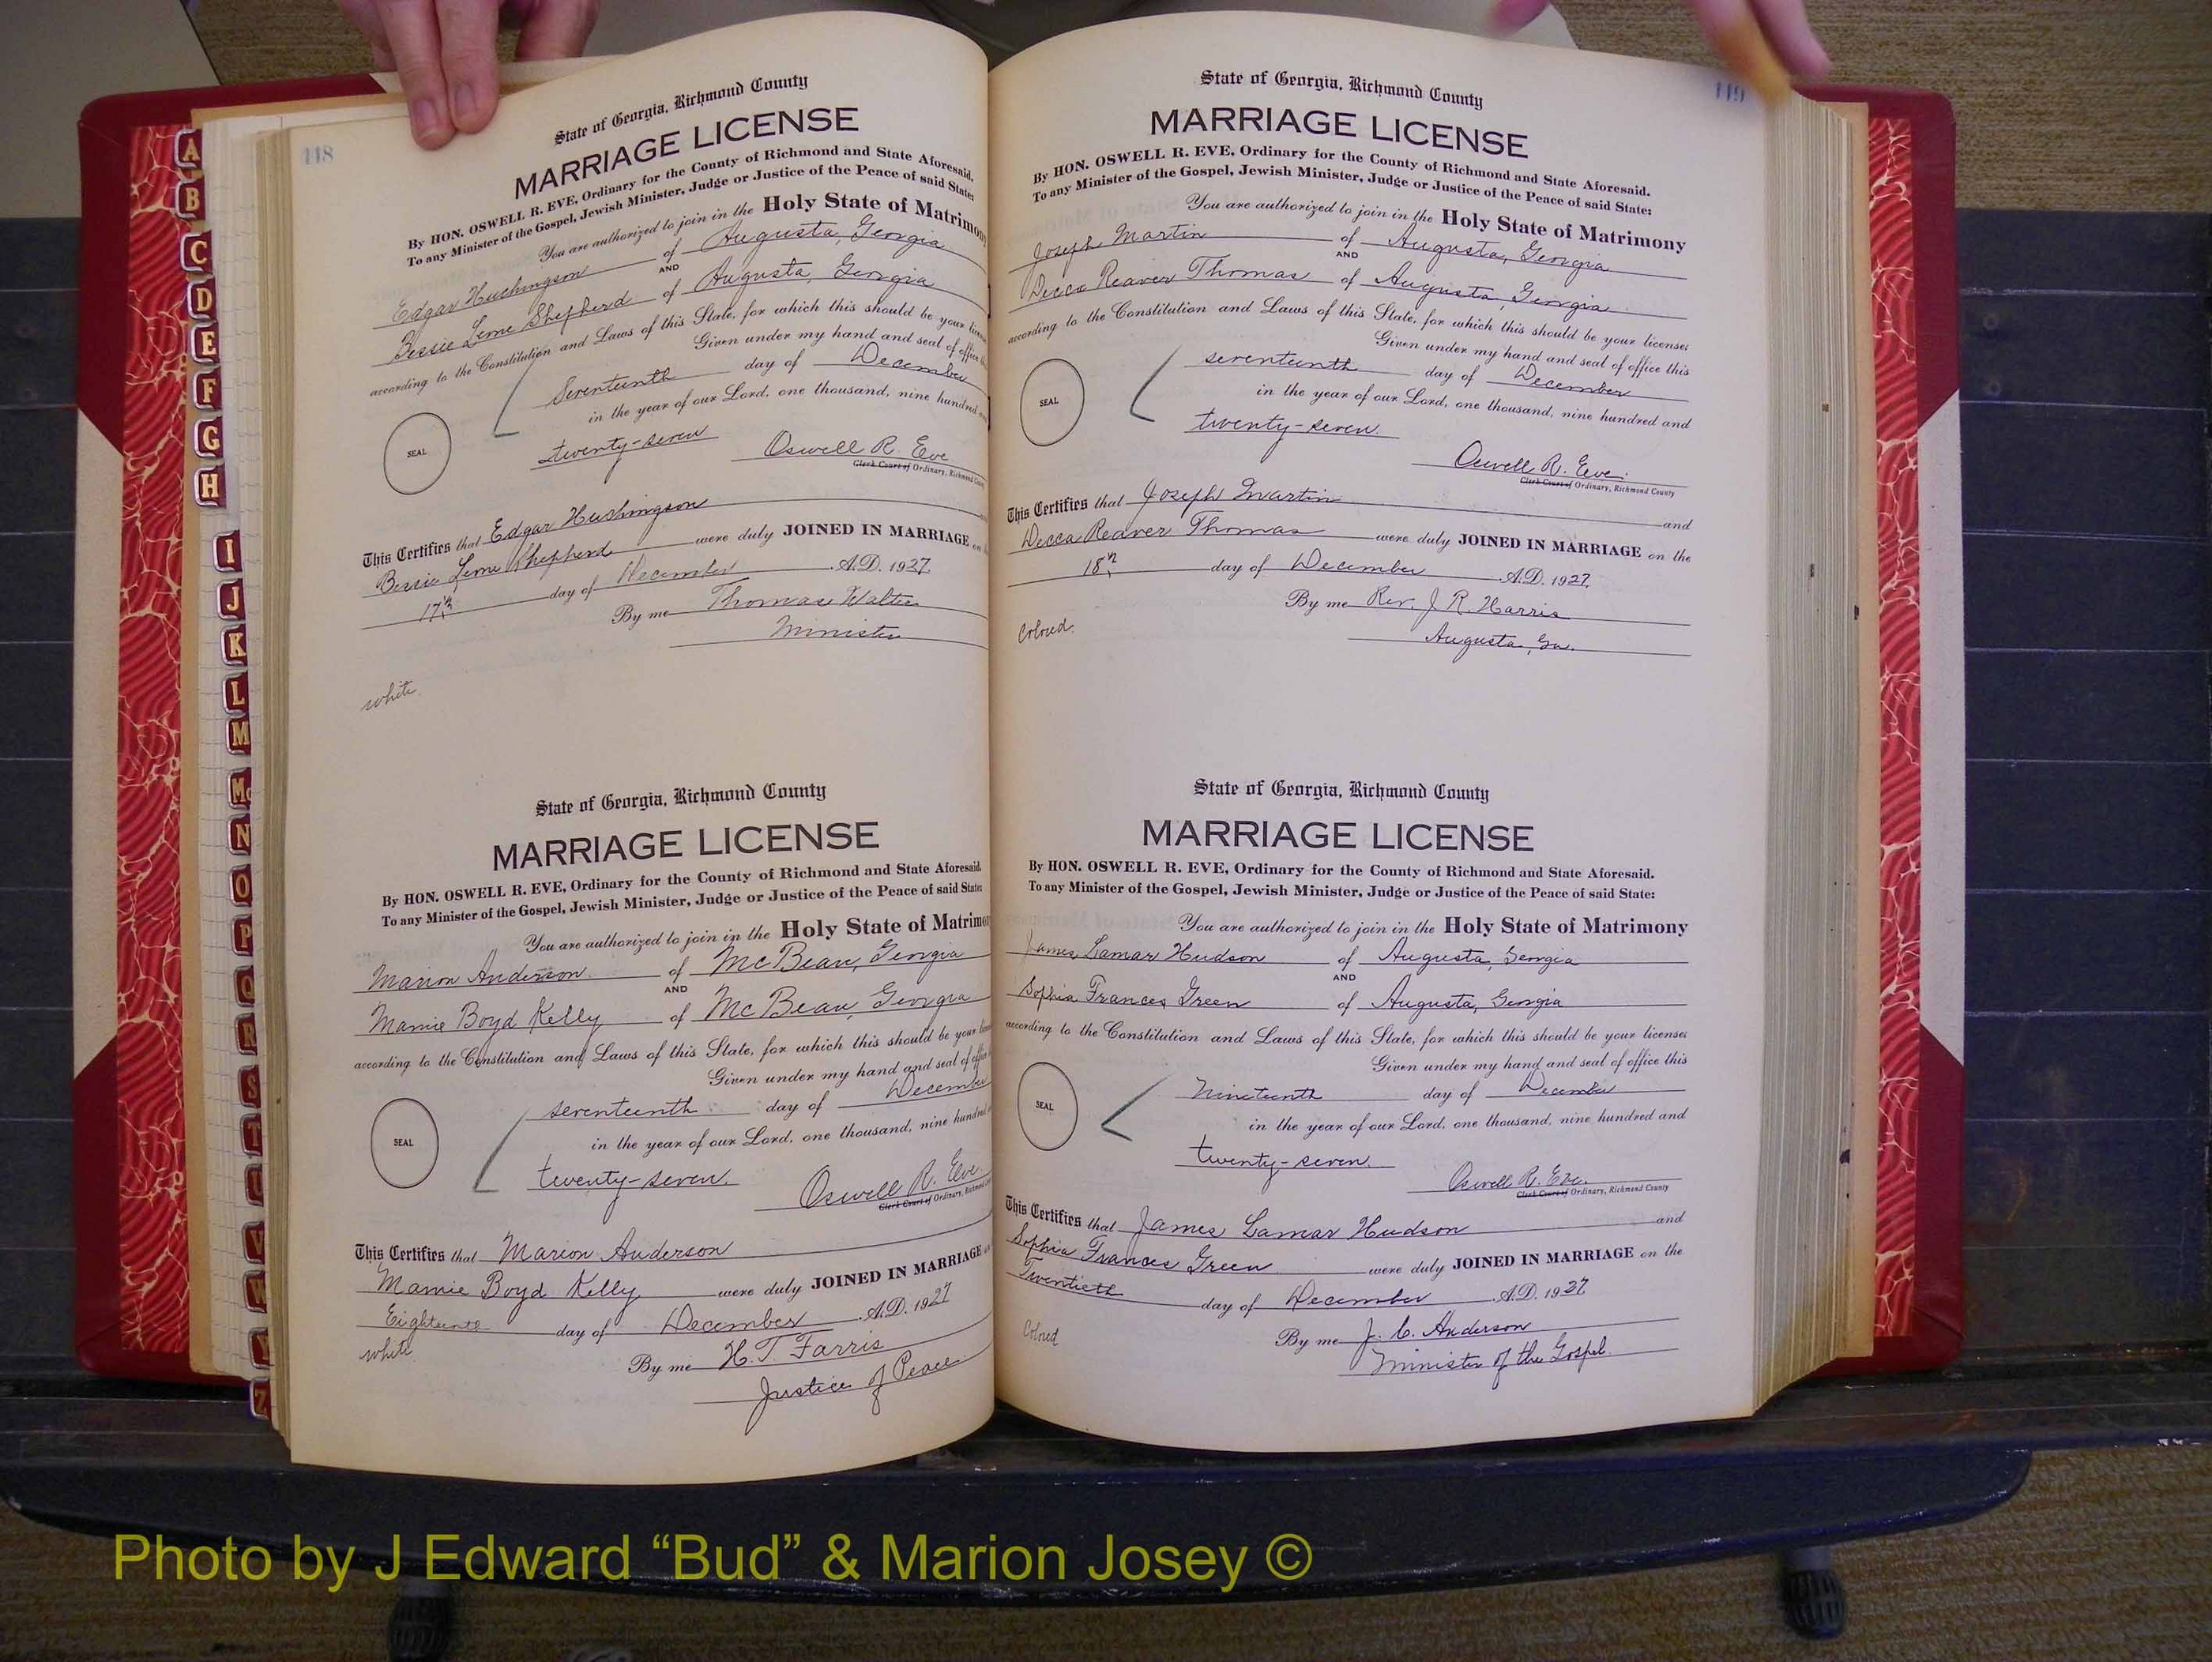 118
State of Georgia, Richmond County
MARRIAGE LICENSE
By HON. OSWELL R. EVE, Ordinary for the County of Richmond and State Aforesaid.
To any Minister of the Gospel, Jewish Minister, Judge or Justice of the Peace of said State:
You are authorized to join in the Holy State of Matrimony
Edgar Huchingson of Augusta, Georgia
AND
Bessie Leme Shepherd of Augusta, Georgia
according to the Constitution and Laws of this State, for which this should be your license
Given under my hand and seal of office this
Seventeenth day of December
in the year of our Lord, one thousand, nine hundred and
SEAL
twenty-seven
Oswell R. Eve
Clerk Court of Ordinary, Richmond County
This Certifies that Edgar Huchingson and
Bessie Leme Shepherd were duly JOINED IN MARRIAGE on the
17th day of December A.D. 1927.
By me Thomas Walter
Minister
white.
State of Georgia, Richmond County
MARRIAGE LICENSE
By HON. OSWELL R. EVE, Ordinary for the County of Richmond and State Aforesaid.
To any Minister of the Gospel, Jewish Minister, Judge or Justice of the Peace of said State:
You are authorized to join in the Holy State of Matrimony
Marion Anderson of McBean, Georgia
AND
Mamie Boyd Kelly of McBean, Georgia
according to the Constitution and Laws of this State, for which this should be your license
Given under my hand and seal of office
seventeenth day of December
in the year of our Lord, one thousand, nine hundred
SEAL
twenty-seven.
Oswell R. Eve.
Clerk Court of Ordinary, Richmond
This Certifies that Marion Anderson
Mamie Boyd Kelly were duly JOINED IN MARRIAGE on
Eighteenth day of December A.D. 1927
white
By me H. T. Farris
Justice of Peace
119
State of Georgia, Richmond County
MARRIAGE LICENSE
By HON. OSWELL R. EVE, Ordinary for the County of Richmond and State Aforesaid.
To any Minister of the Gospel, Jewish Minister, Judge or Justice of the Peace of said State:
You are authorized to join in the Holy State of Matrimony
Joseph Martin of Augusta, Georgia
AND
Decca Reaver Thomas of Augusta, Georgia
according to the Constitution and Laws of this State, for which this should be your license
Given under my hand and seal of office this
seventeenth day of December
in the year of our Lord, one thousand, nine hundred and
SEAL
twenty-seven.
Oswell R. Eve.
Clerk Court of Ordinary, Richmond County
This Certifies that Joseph Martin and
Decca Reaver Thomas were duly JOINED IN MARRIAGE on the
18th day of December A.D. 1927.
By me Rev. J. R. Harris
Colored.
Augusta, Ga.
State of Georgia, Richmond County
MARRIAGE LICENSE
By HON. OSWELL R. EVE, Ordinary for the County of Richmond and State Aforesaid.
To any Minister of the Gospel, Jewish Minister, Judge or Justice of the Peace of said State:
You are authorized to join in the Holy State of Matrimony
James Lamar Hudson of Augusta, Georgia
AND
Sophia Frances Green of Augusta, Georgia
according to the Constitution and Laws of this State, for which this should be your license
Given under my hand and seal of office this
Nineteenth day of December
in the year of our Lord, one thousand, nine hundred and
SEAL
twenty-seven.
Oswell R. Eve.
Clerk Court of Ordinary, Richmond County
This Certifies that James Lamar Hudson and
Sophia Frances Green were duly JOINED IN MARRIAGE on the
Twentieth day of December A.D. 1927
Colored
By me J. C. Anderson
Minister of the Gospel.
A
B
C
D
E
F
G
H
I
J
K
L
M
Mc
N
O
P
Q
R
S
T
U
V
W
Y
Z
Photo by J Edward “Bud” & Marion Josey ©